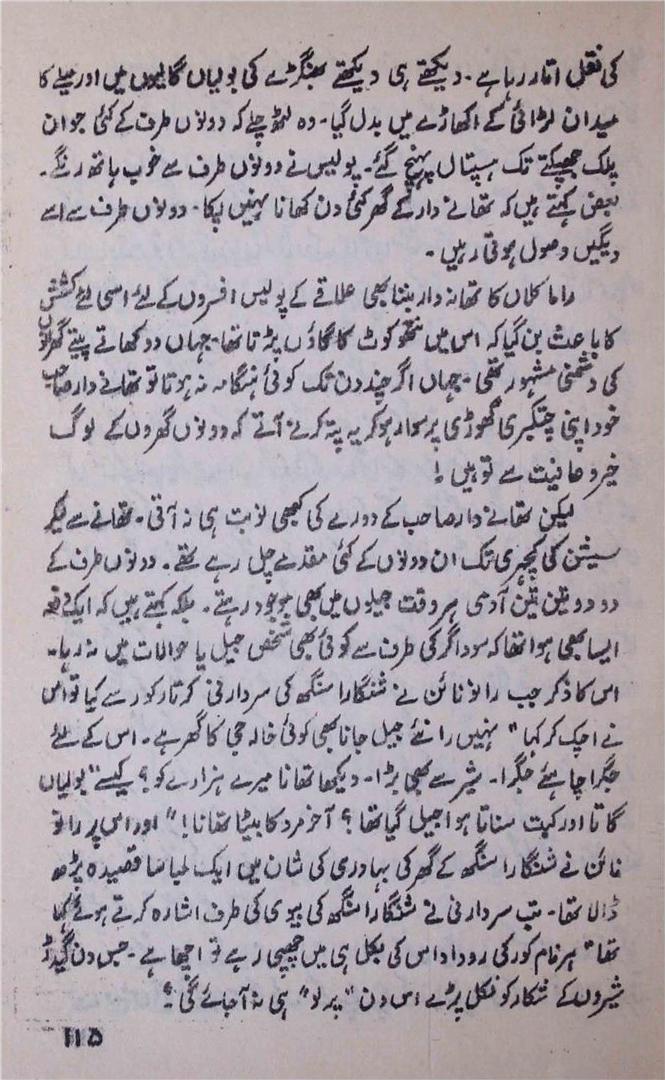 کی نقل اتار رہا ہے۔ دیکھتے ہی دیکھتے بھنگڑے کی بولیاں گالیوں میں اور میلے کا
میدان لڑائی کے اکھاڑے میں بدل گیا۔ وہ لٹھ چلے کہ دونوں طرف کے کئی جوان
پلک جھپکتے تک ہسپتال پہنچ گئے۔ پولیس نے دونوں طرف سے خوب ہاتھ رنگے۔
بعض کہتے ہیں کہ تھانے دار کے گھر کئی دن کھانا نہیں پکا۔ دونوں طرف سے اسے
دیگیں وصول ہوتی رہیں۔
راما کلاں کا تھانہ دار بننا بھی علاقے کے پولیس افسروں کے لئے اسی لئے کشش
کا باعث بن گیا کہ اس میں نتھو کوٹ کا گاؤں پڑتا تھا۔ جہاں دو کھاتے پیتے گھرانوں
کی دشمنی مشہور تھی۔ جہاں اگر چند دن تک کوئی ہنگامہ نہ ہوتا تو تھانے دار صاحب
خود اپنی چتکبری گھوڑی پر سوار ہو کر یہ پتہ کرنے آتے کہ دونوں گھروں کے لوگ
خیر و عافیت سے تو ہیں !
لیکن تھانے دار صاحب کے دورے کی کبھی نوبت ہی نہ آتی۔ تھانے سے لیکر
سیشن کی کچہری تک ان دونوں کے کئی مقدمے چل رہے تھے۔ دونوں طرف کے
دو دو تین تین آدمی ہر وقت جیلوں میں بھی موجود رہتے۔ بلکہ کہتے ہیں کہ ایک دفعہ
ایسا بھی ہوا تھا کہ سوداگر کی طرف سے کوئی بھی شخص جیل یا حوالات میں نہ رہا۔
اس کا ذکر جب رانو نائن نے شنگارا سنگھ کی سردارنی کرتار کور سے کیا تو اس
نے اچک کر کہا " نہیں رانئے جیل جانا بھی کوئی خالہ جی کا گھر ہے۔ اس کے لئے
جگرا چاہئے جگرا۔ شیر سے بھی بڑا۔ دیکھا تھا نا میرے ہزارے کو؟ کیسے" بولیاں
گاتا اور کبت سناتا ہوا جیل گیا تھا ؟ آخر مرد کا بیٹا تھا نا !" اور اس پر رانو
نائن نے شنگارا سنگھ کے گھر کی بہادری کی شان میں ایک لمبا سا قصیدہ پڑھ
ڈالا تھا۔ تب سردارنی نے شنگارا سنگھ کی بیوی کی طرف اشارہ کرتے ہوئے کہا
تھا " ہرنام کور کی روداد اس کی بکل ہی میں چھپی رہے تو اچھا ہے۔ جس دن گیدڑ
شیروں کے شکار کو نکل پڑے اس دن "پرلو" ہی نہ آ جائے گی ؟
۱۱۵